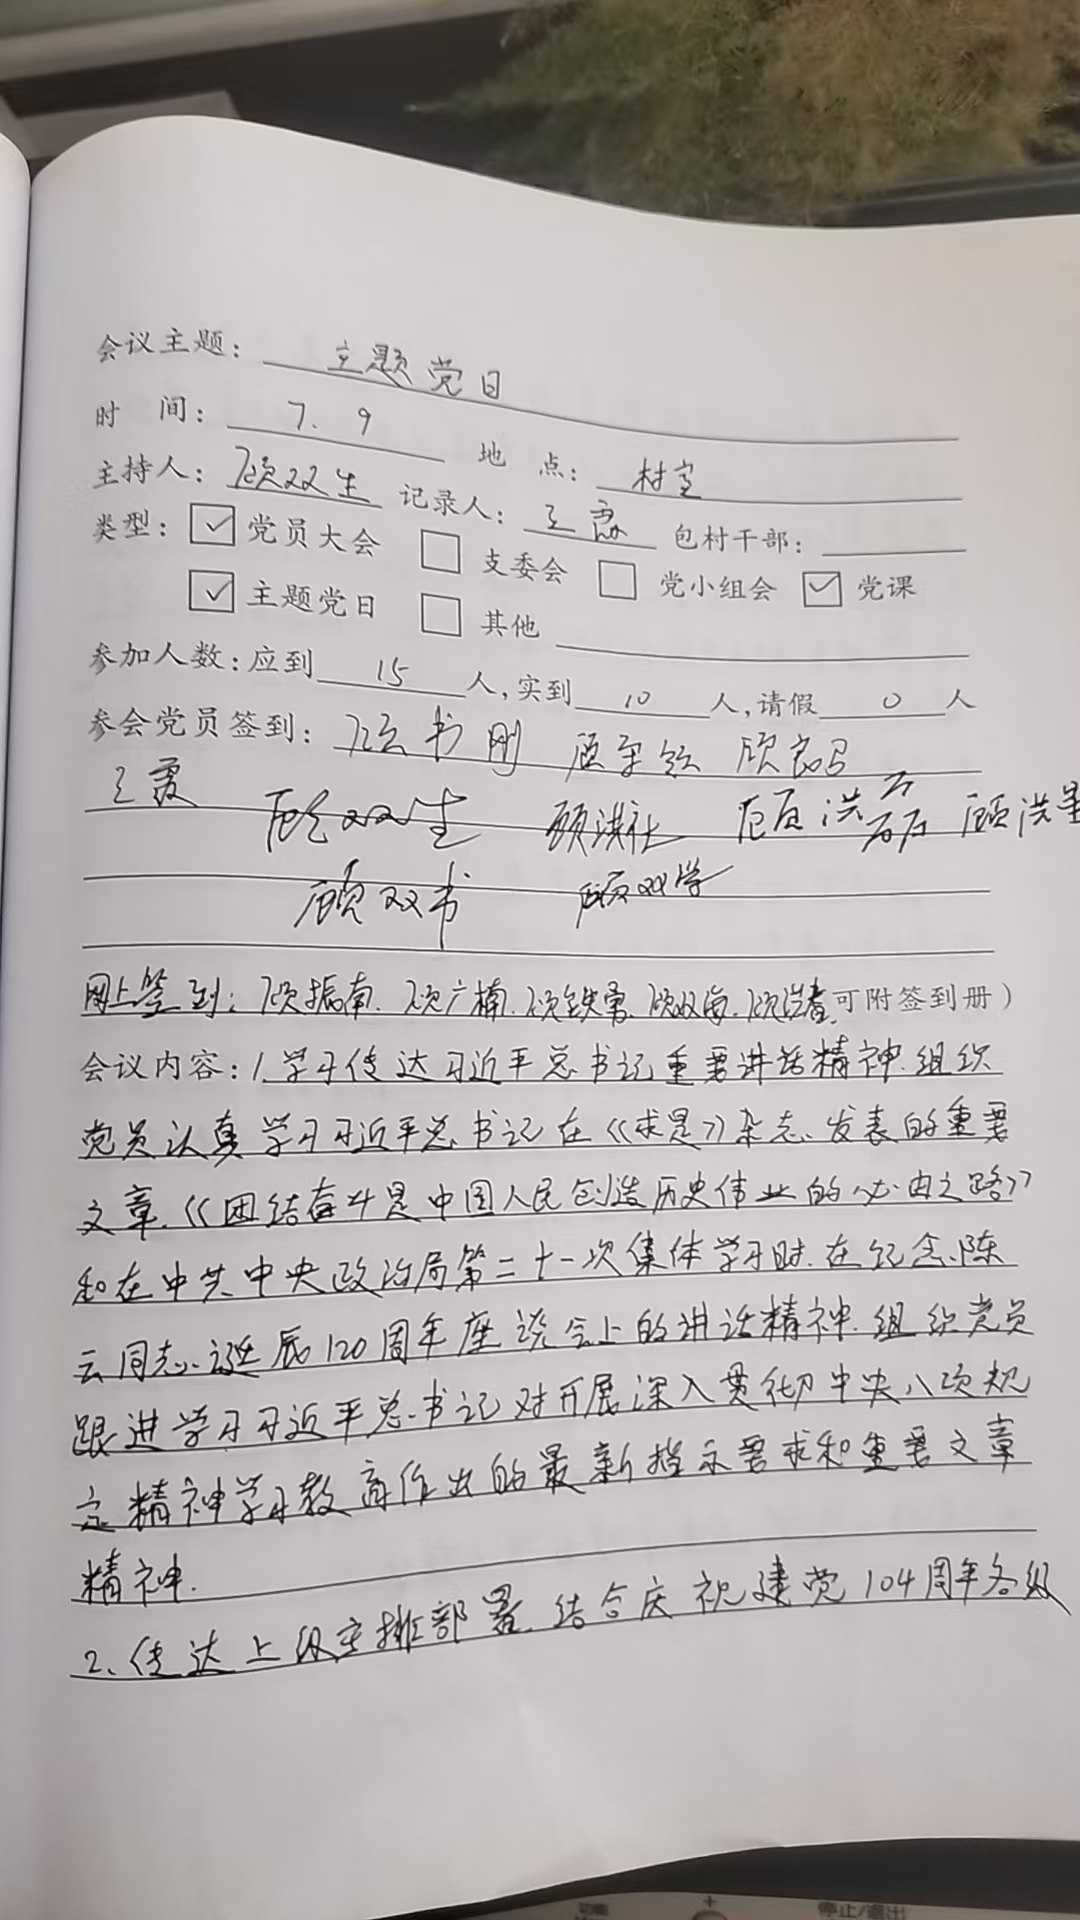 会议主题: 主题党日
时 间: 7. 9 地 点: 村室
主持人: 顾双生 记录人: 王霞 包村干部:
类型: ☑ 党员大会 □ 支委会 □ 党小组会 ☑ 党课
☑ 主题党日 □ 其他
参加人数:应到 15 人,实到 10 人,请假 0 人
参会党员签到: 顾书刚 顾良
王霞 顾双生 顾洪社 顾洪磊 顾洪星
顾双书 顾双学
网上签到: 顾振南. 顾广楠. 顾铁勇. 顾双海. 可附签到册)
会议内容: 1.学习传达习近平总书记重要讲话精神.组织
党员认真学习习近平总书记在《求是》杂志发表的重要
文章.《团结奋斗是中国人民创造历史伟业的必由之路》
和在中共中央政治局第二十一次集体学习时.在纪念陈
云同志诞辰120周年座谈会上的讲话精神.组织党员
跟进学习习近平总书记对开展深入贯彻中央八项规
定精神学习教育作出的最新指示要求和重要文章
精神.
2、传达上级安排部署.结合庆祝建党104周年各级
功能 + 停止/退出